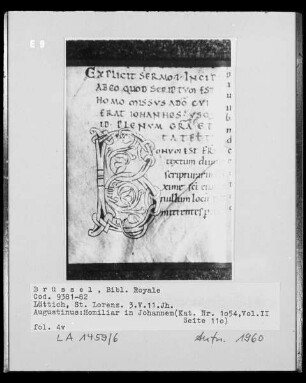 E 9
EXPLICIT SERMO I INCIT
AB EO QUOD SCRIPTUM EST
HOMO MISSUS A DO CUI
ERAT IOHANNES USQ
ID PLENUM GRA ET
TATEI
ONUM EST FR
textum diu
scripturar
xime sci eu
nullum locu
mittentes p
Brüssel, Bibl. Royale
Cod. 9381-82
Lüttich, St. Lorens. 3.V.11.Jh.
Augustinus:Homiliar in Johannem(Kat. Nr. 1o54,Vol.II
Seite 11o)
fol. 4v
LA 1459/6 Aufn. 1960